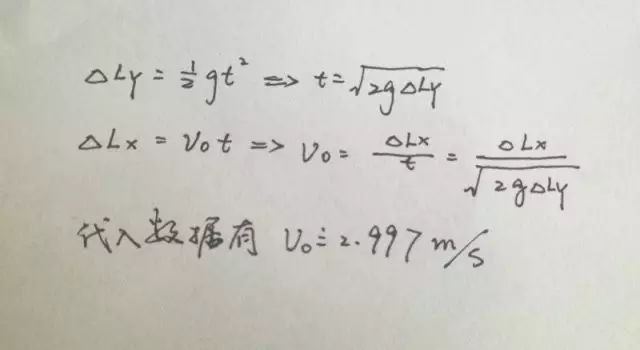 ΔLy = ½gt² => t = √2gΔLy
ΔLx = V₀t => V₀ = ΔLx/t = ΔLx/√2gΔLy
代入数据有 V₀≐2.997m/s